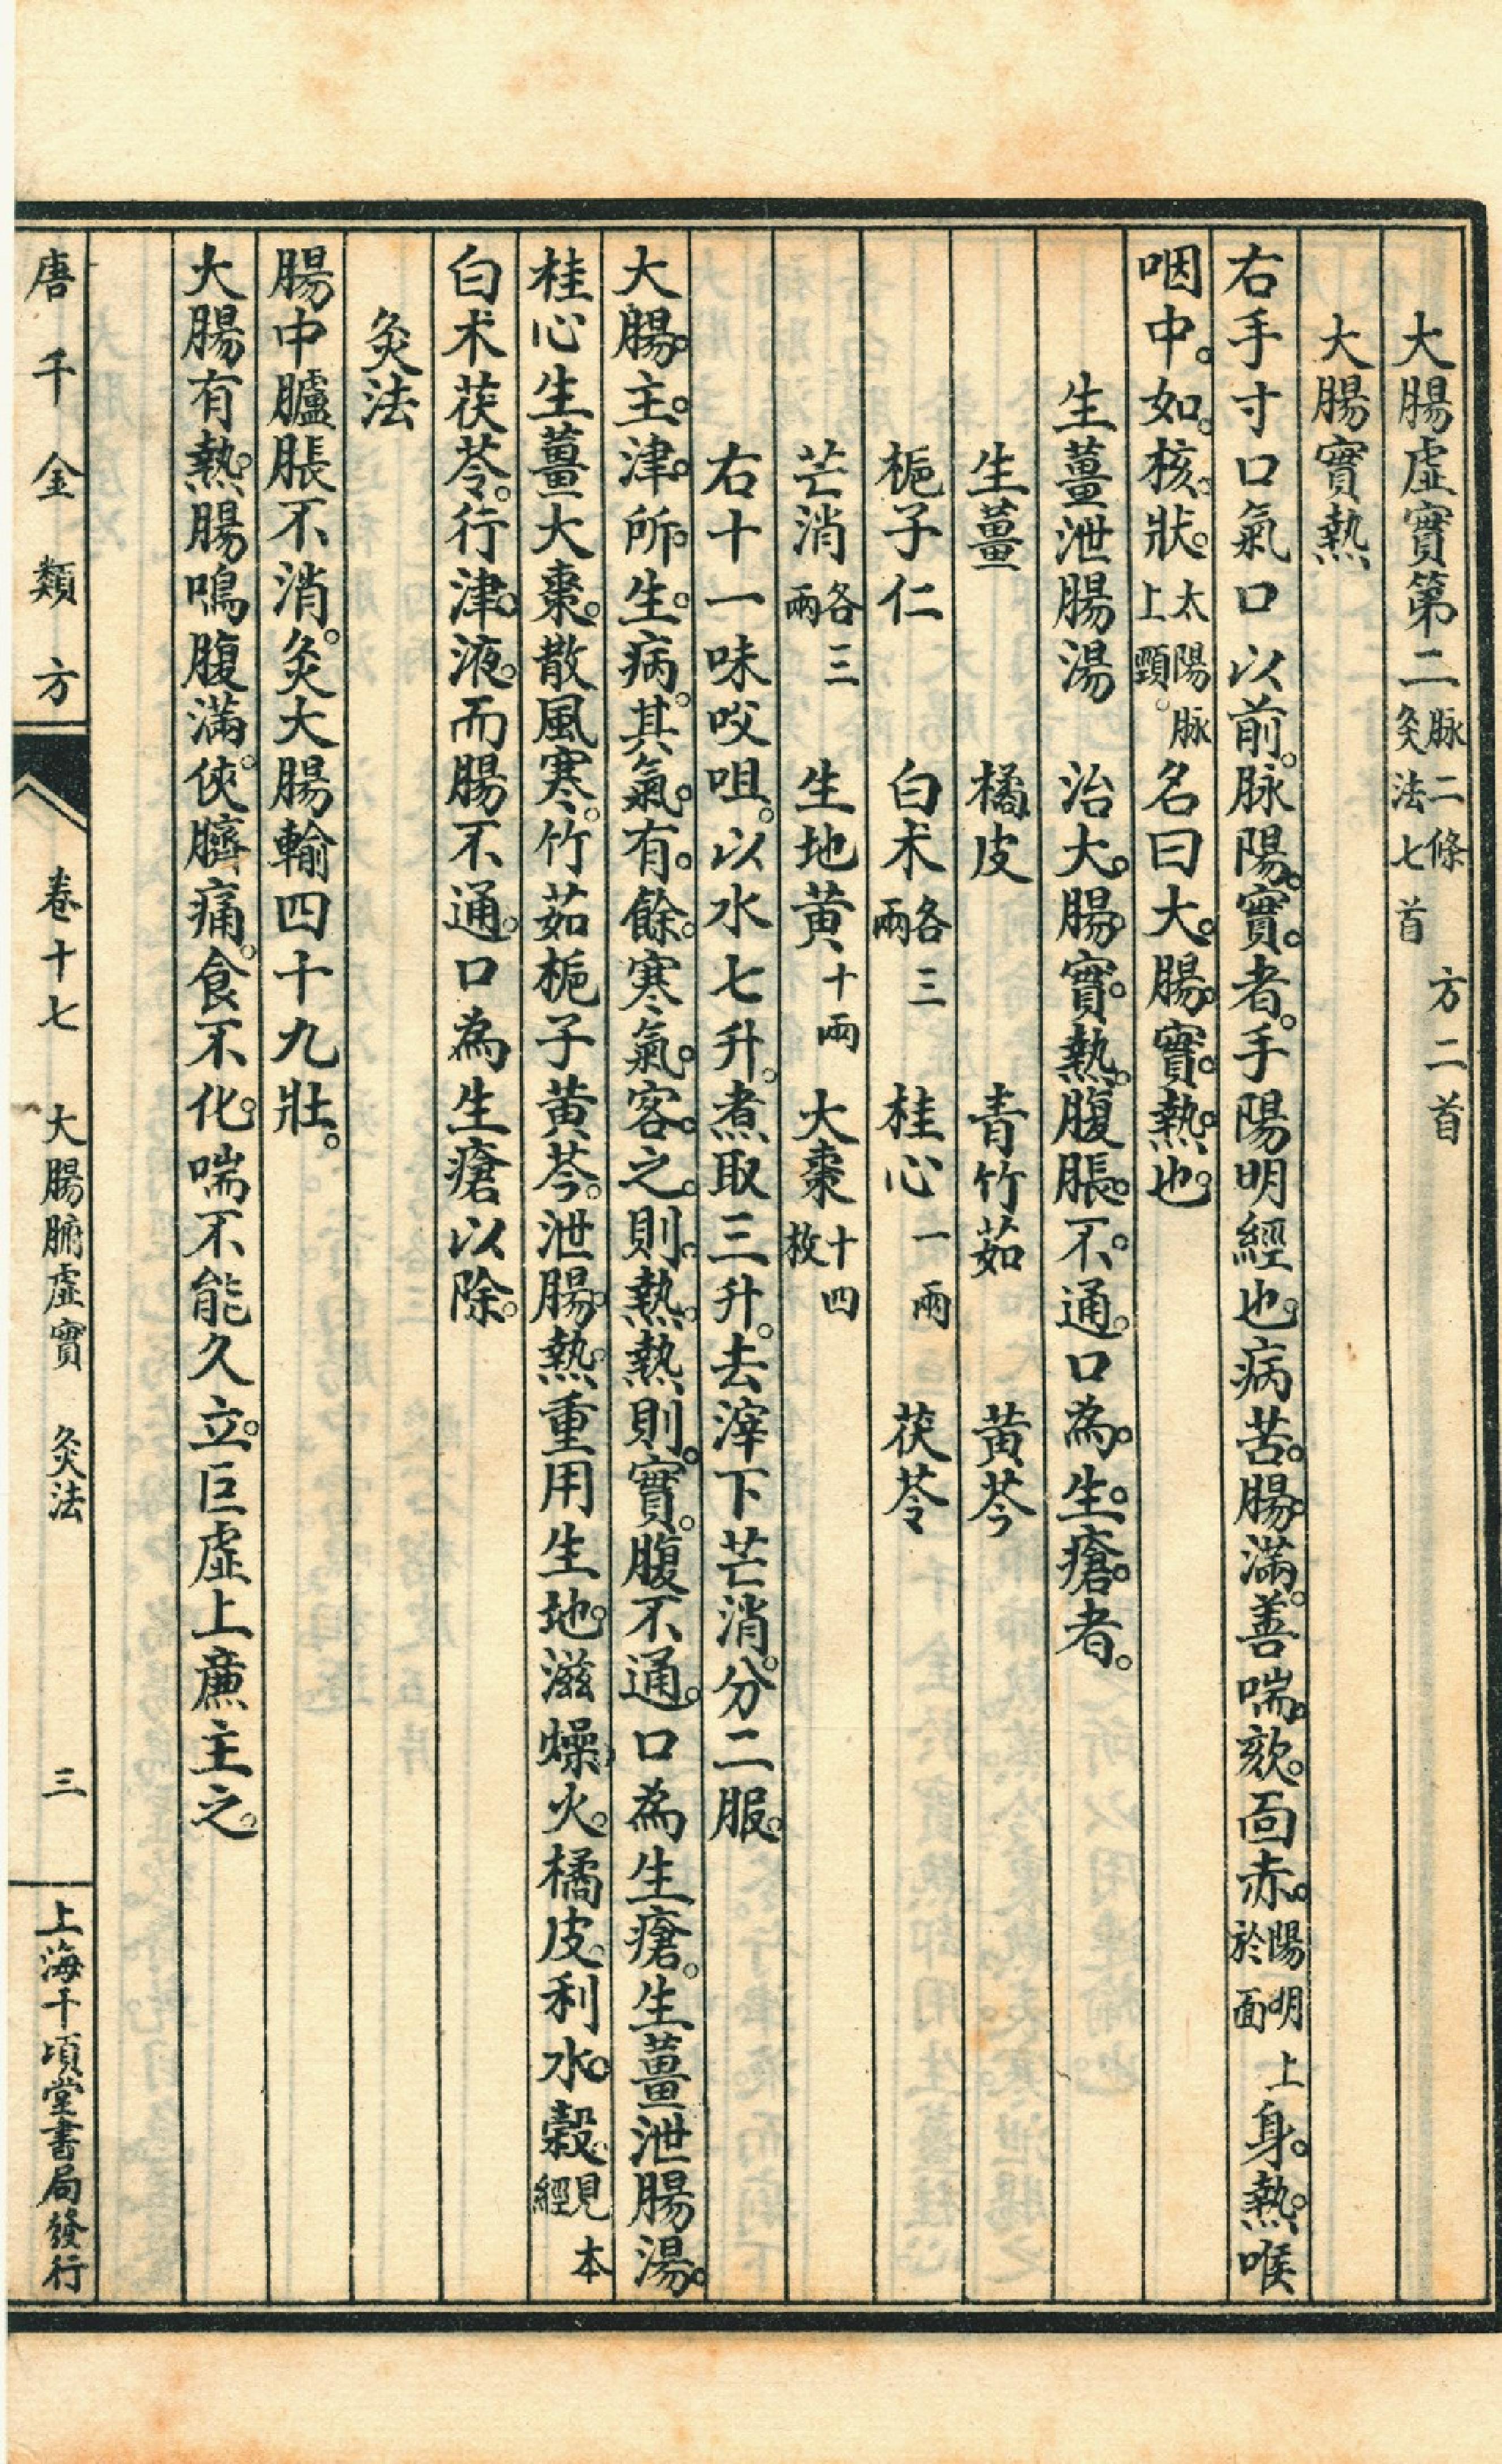 大腸虛實第二 脉二條 方二首 灸法七首
大腸實熱
右手寸口氣口以前。脉陽。實。者。手陽明經也。病苦。腸。滿。善喘。欬。面赤。陽明上於面身。熱。喉
咽中。如。核。狀。太陽脉上頸。名曰大。腸。實。熱。也。
生薑泄腸湯　治大。腸。實。熱。腹脹。不。通。口為。生。瘡。者。
生薑　橘皮　青竹茹　黃芩
梔子仁　白术各三兩　桂心一兩　茯苓
芒消各三兩　生地黃十兩　大棗十四枚
右十一味㕮咀。以水七升。煮取三升。去滓下芒消。分二服。
大腸。主。津。所。生。病。其氣。有。餘。寒氣。客。之。則。熱。熱則。實。腹不通。口為生瘡。生薑泄腸湯。
桂心生薑大棗。散風寒。竹茹梔子黃芩。泄腸。熱。重用生地。滋燥。火。橘皮。利水。穀。見本經
白术茯苓。行津。液。而腸不通。口為生瘡以除。
灸法
腸中臚脹不消。灸大腸輸四十九壯。
大腸有熱。腸鳴腹滿。俠臍痛。食不化。喘不能久立。巨虛上廉主之。
唐千金類方　卷十七　大腸腑虛實　灸法　三　上海千頃堂書局發行